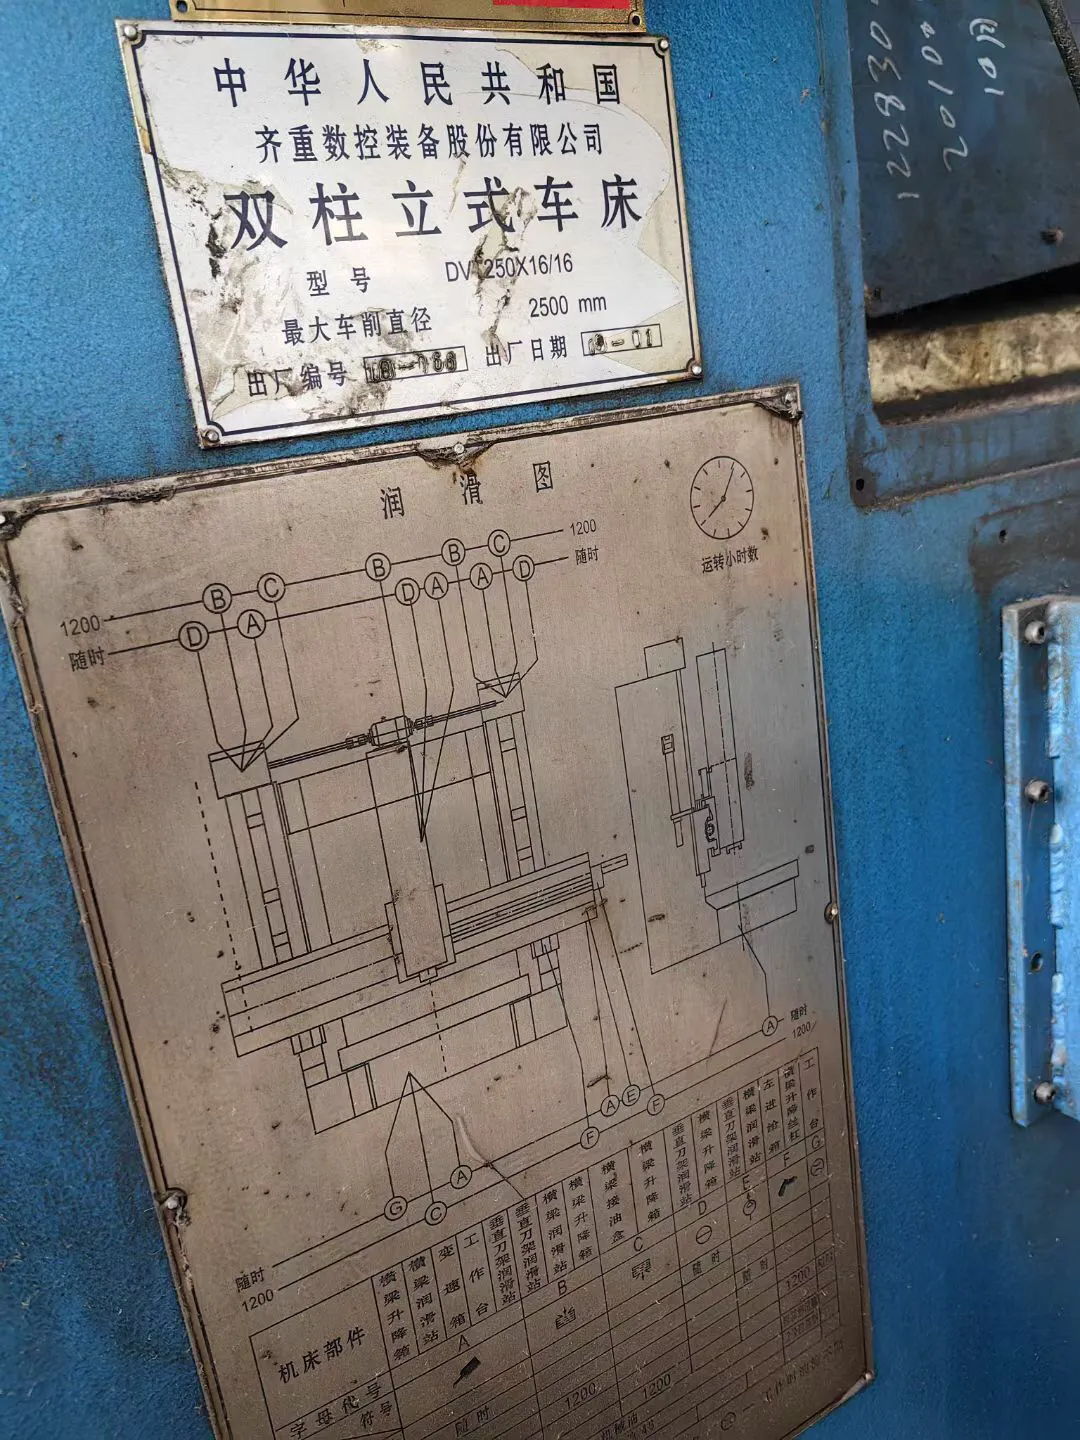 中华人民共和国
齐重数控装备股份有限公司
双柱立式车床
型号 DV 250X16/16
最大车削直径 2500 mm
出厂编号 出厂日期
润滑图
运转小时数
B C 1200
B
随时
D A A D
1200 B C
随时 D A
随时
A
1200
A E F
F
A
G C
随时
1200
机床部件
横梁升降箱
横梁润滑站
变速箱
工作台
垂直刀架润滑站
垂直刀架润滑站
横梁润滑站
横梁升降箱
横梁接油盒
横梁升降箱
垂直刀架润滑站
横梁升降箱
垂直刀架润滑站
横梁润滑站
左进给箱
横梁升降丝杠
工作台
字母代号 A B C D E F G
符号
随时 1200 1200 随时 随时 1200
机械油